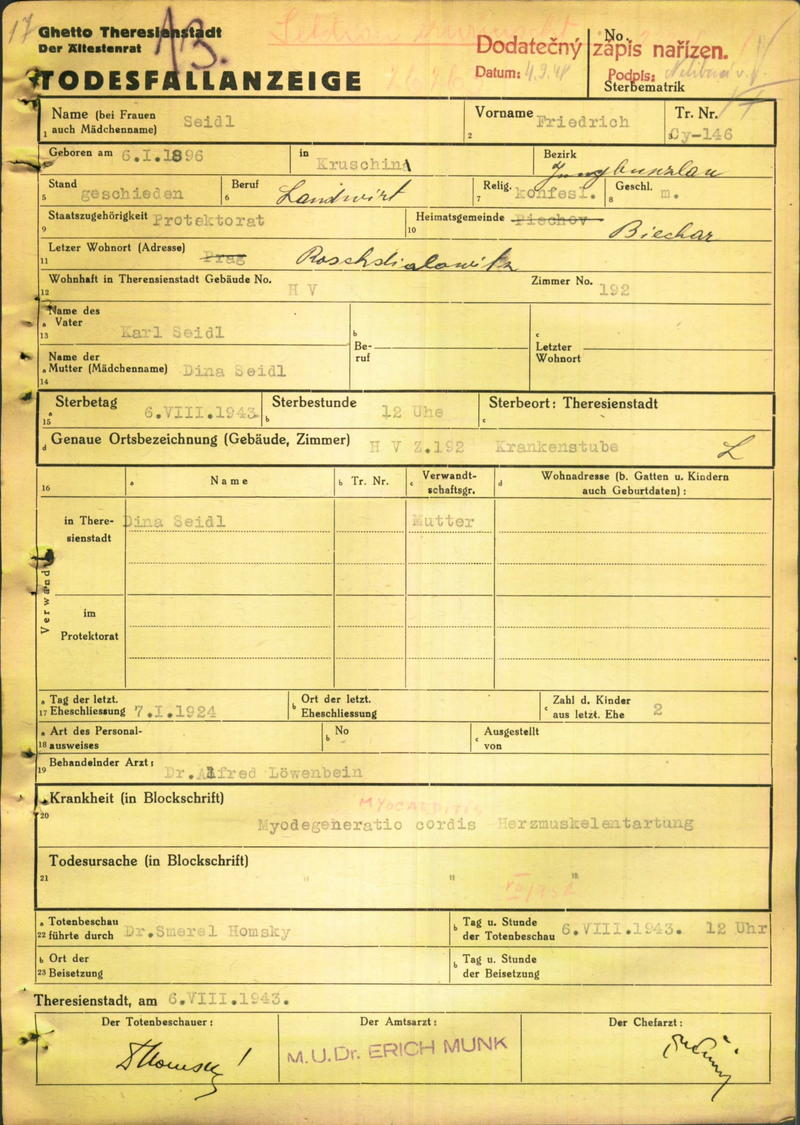 17
Ghetto Theresienstadt
Der Ältestenrat
TODESFALLANZEIGE
Dodatečný zápis nařízen.
Datum: 4.9.48 Podpis:
No.
Sterbematrik
Name (bei Frauen auch Mädchenname) Seidl
1
Vorname Friedrich
2
Tr. Nr. Cy-146
3
Geboren am 6.I.1896
4
in Kruschina
Bezirk Jungbunzlau
Stand geschieden
5
Beruf Landwirt
6
Relig. konfesl.
7
Geschl. m.
8
Staatszugehörigkeit Protektorat
9
Heimatsgemeinde Pischov Biechar
10
Letzer Wohnort (Adresse) Prag Roschdialowitz
11
Wohnhaft in Theresienstadt Gebäude No. H V
12
Zimmer No. 192
Name des
a Vater Karl Seidl
13
b
Beruf
c
Letzter
Wohnort
Name der
a Mutter (Mädchenname) Dina Seidl
14
Sterbetag 6.VIII.1943
a
15
Sterbestunde 12 Uhe
b
Sterbeort: Theresienstadt
c
d Genaue Ortsbezeichnung (Gebäude, Zimmer) H V Z.192 Krankenstube L
16
a Name
b Tr. Nr.
c Verwandtschaftsgr.
d Wohnadresse (b. Gatten u. Kindern auch Geburtdaten):
Verwandte
in Theresienstadt
Dina Seidl Mutter
im
Protektorat
a Tag der letzt.
17 Eheschliessung 7.I.1924
b Ort der letzt.
Eheschliessung
c Zahl d. Kinder
aus letzt. Ehe 2
a Art des Personal-
18 ausweises
b No
c Ausgestellt
von
Behandelnder Arzt: Dr.Alfred Löwenbein
19
Krankheit (in Blockschrift)
20
MYOCARDITIS
Myodegeneratio cordis Herzmuskelentartung
Todesursache (in Blockschrift)
21
" " "
a Totenbeschau
22 führte durch Dr.Smerel Homsky
b Tag u. Stunde
der Totenbeschau 6.VIII.1943. 12 Uhr
b Ort der
23 Beisetzung
b Tag u. Stunde
der Beisetzung
Theresienstadt, am 6.VIII.1943.
Der Totenbeschauer:
Der Amtsarzt:
Der Chefarzt:
M.U.Dr. ERICH MUNK